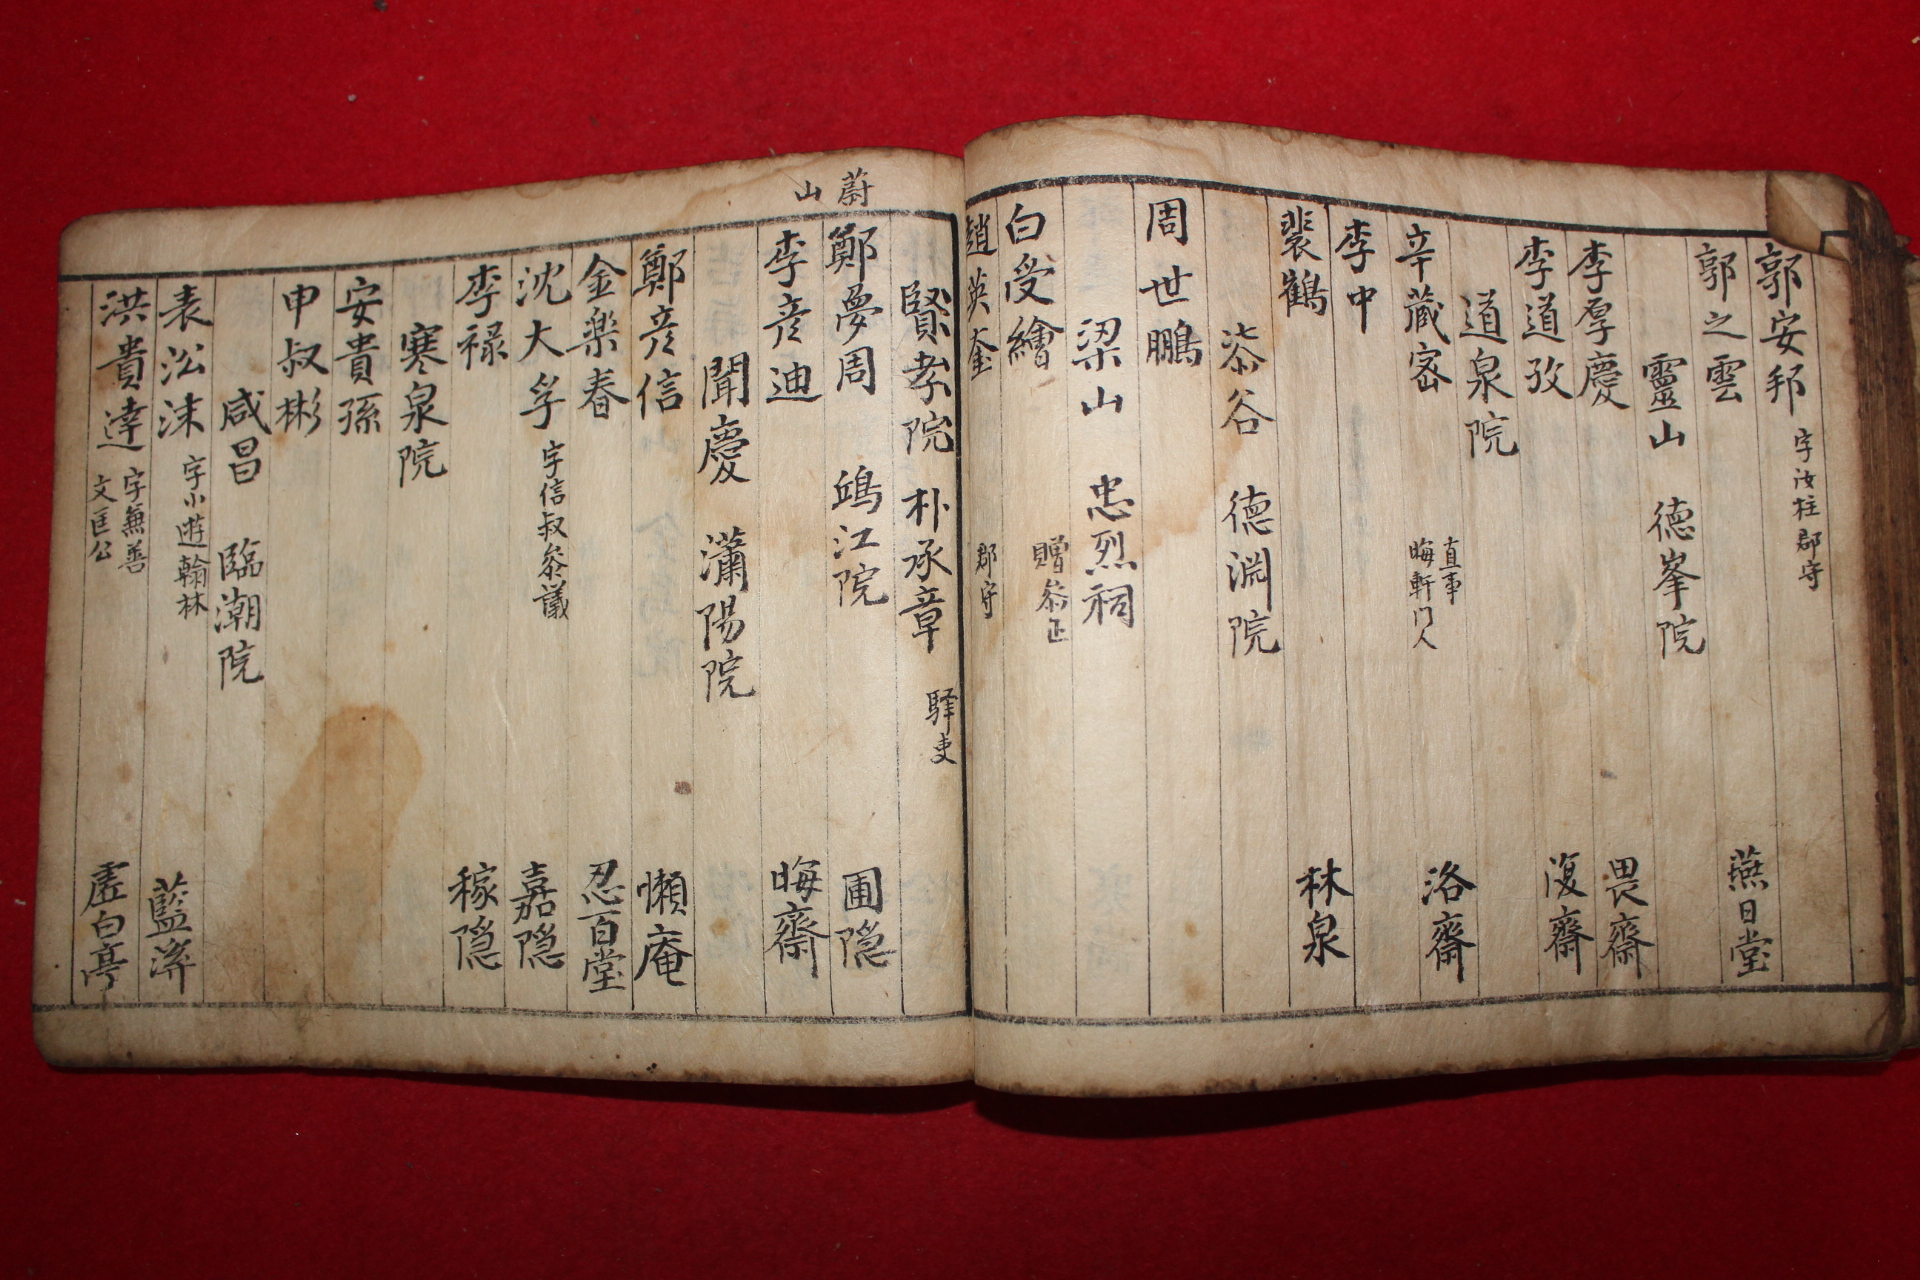 郭安邦 字汝柱 郡守
郭之雲 燕日堂
靈山 德峯院
李厚慶 畏齋
李道孜 復齋
道泉院
辛藏密 直事 晦軒門人 洛齋
李中
裴鶴 林泉
柒谷 德淵院
周世鵬
梁山 忠烈祠
白受繪 贈叅正
趙英奎 郡守
賢孝院 朴承章 驛吏
蔚山
鄭夢周 鴻江院 圃隠
李彦迪 晦齋
聞慶 瀟陽院
鄭彦信 懶庵
金楽春 忍百堂
沈大孚 字信叔叅議 嘉隠
李禄 稼隠
寒泉院
安貴孫
申叔彬
咸昌 臨潮院
表沿沫 字小遊翰林 藍溪
洪貴達 字兼善 文匡公 虚白亭